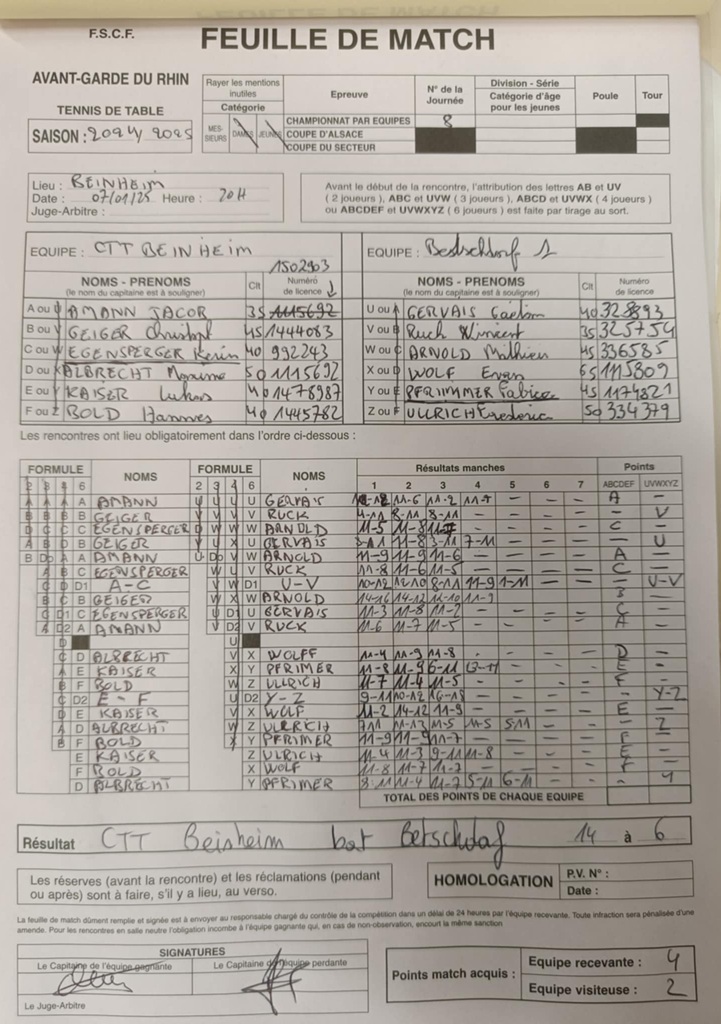 F.S.C.F.
FEUILLE DE MATCH
AVANT-GARDE DU RHIN
TENNIS DE TABLE
SAISON : 2024/2025
Rayer les mentions inutiles
Catégorie
MES-SIEURS DAMES JEUNES
Epreuve
N° de la Journée
Division - Série
Catégorie d'âge pour les jeunes
Poule
Tour
CHAMPIONNAT PAR EQUIPES 8
COUPE D'ALSACE
COUPE DU SECTEUR
Lieu : BEINHEIM
Date : 07/01/25 Heure : 20H
Juge-Arbitre :
Avant le début de la rencontre, l'attribution des lettres AB et UV
( 2 joueurs ), ABC et UVW ( 3 joueurs ), ABCD et UVWX ( 4 joueurs )
ou ABCDEF et UVWXYZ ( 6 joueurs ) est faite par tirage au sort.
EQUIPE : CTT BEINHEIM
EQUIPE : Betschdorf 1
1502903
NOMS - PRENOMS (le nom du capitaine est à souligner) Clt Numéro de licence
NOMS - PRENOMS (le nom du capitaine est à souligner) Clt Numéro de licence
A ou U AMANN JACOB 35 1115692
U ou A GERVAIS Gaëtan 40 328893
B ou V GEIGER Christoph 45 1444083
V ou B Ruck Vincent 35 325754
C ou W EGENSPERGER Kevin 40 992243
W ou C ARNOLD Mathieu 45 336585
D ou X ALBRECHT Maxime 50 1115692
X ou D WOLF Evan 65 1115809
E ou Y KAISER Lukas 40 1478987
Y ou E PFRIMMER Fabice 45 1174821
F ou Z BOLD Hannes 40 1445782
Z ou F ULLRICH Frederic 50 334379
Les rencontres ont lieu obligatoirement dans l'ordre ci-dessous :
FORMULE NOMS FORMULE NOMS Résultats manches Points
2 3 4 6 2 3 4 6 1 2 3 4 5 6 7 ABCDEF UVWXYZ
A AMANN U GERVAIS 11-6 11-2 A -
B GEIGER V RUCK 8-11 - V
C EGENSPERGER W ARNOLD 11-5 11-8 C -
B GEIGER U GERVAIS 11-8 3-11 7-11 - U
A AMANN W ARNOLD 11-9 11-9 11-6 A -
C EGENSPERGER V RUCK 11-8 11-6 11-5 C -
D1 A-C D1 U-V 10-12 12-10 8-11 11-9 - U-V
B GEIGER W ARNOLD 14-16 14-12 11-9 -
C EGENSPERGER U GERVAIS 11-3 11-8 11-2 C -
A AMANN V RUCK 11-6 11-7 11-5 A -
D ALBRECHT X WOLFF 11-4 11-9 11-8 D -
E KAISER Y PFRIMER 11-8 11-9 6-11 E -
F BOLD Z ULLRICH 11-7 11-4 11-5 F -
D2 E - F D2 Y-Z 9-11 10-12 16-18 - Y-Z
E KAISER X WOLF 11-2 14-12 11-9 E -
D ALBRECHT Z ULLRICH 11-5 5-11 - Z
F BOLD Y PFRIMER 11-9 11-9 11-7 F -
E KAISER Z ULRICH 11-4 11-3 9-11 11-8 E -
F BOLD X WOLF 11-8 11-7 F -
D ALBRECHT Y PFRIMER 8-11 11-4 11-7 5-11 6-11 - Y
TOTAL DES POINTS DE CHAQUE EQUIPE
Résultat CTT Beinheim bat Betschdorf 14 à 6
Les réserves (avant la rencontre) et les réclamations (pendant
ou après) sont à faire, s'il y a lieu, au verso.
HOMOLOGATION
P.V. N° :
Date :
La feuille de match dûment remplie et signée est à envoyer au responsable chargé du contrôle de la compétition dans un délai de 24 heures par l'équipe recevante. Toute infraction sera pénalisée d'une
amende. Pour les rencontres en salle neutre l'obligation incombe à l'équipe gagnante qui, en cas de non-observation, encourt la même sanction
SIGNATURES
Le Capitaine de l'équipe gagnante
Le Capitaine de l'équipe perdante
Le Juge-Arbitre
Points match acquis :
Equipe recevante : 4
Equipe visiteuse : 2